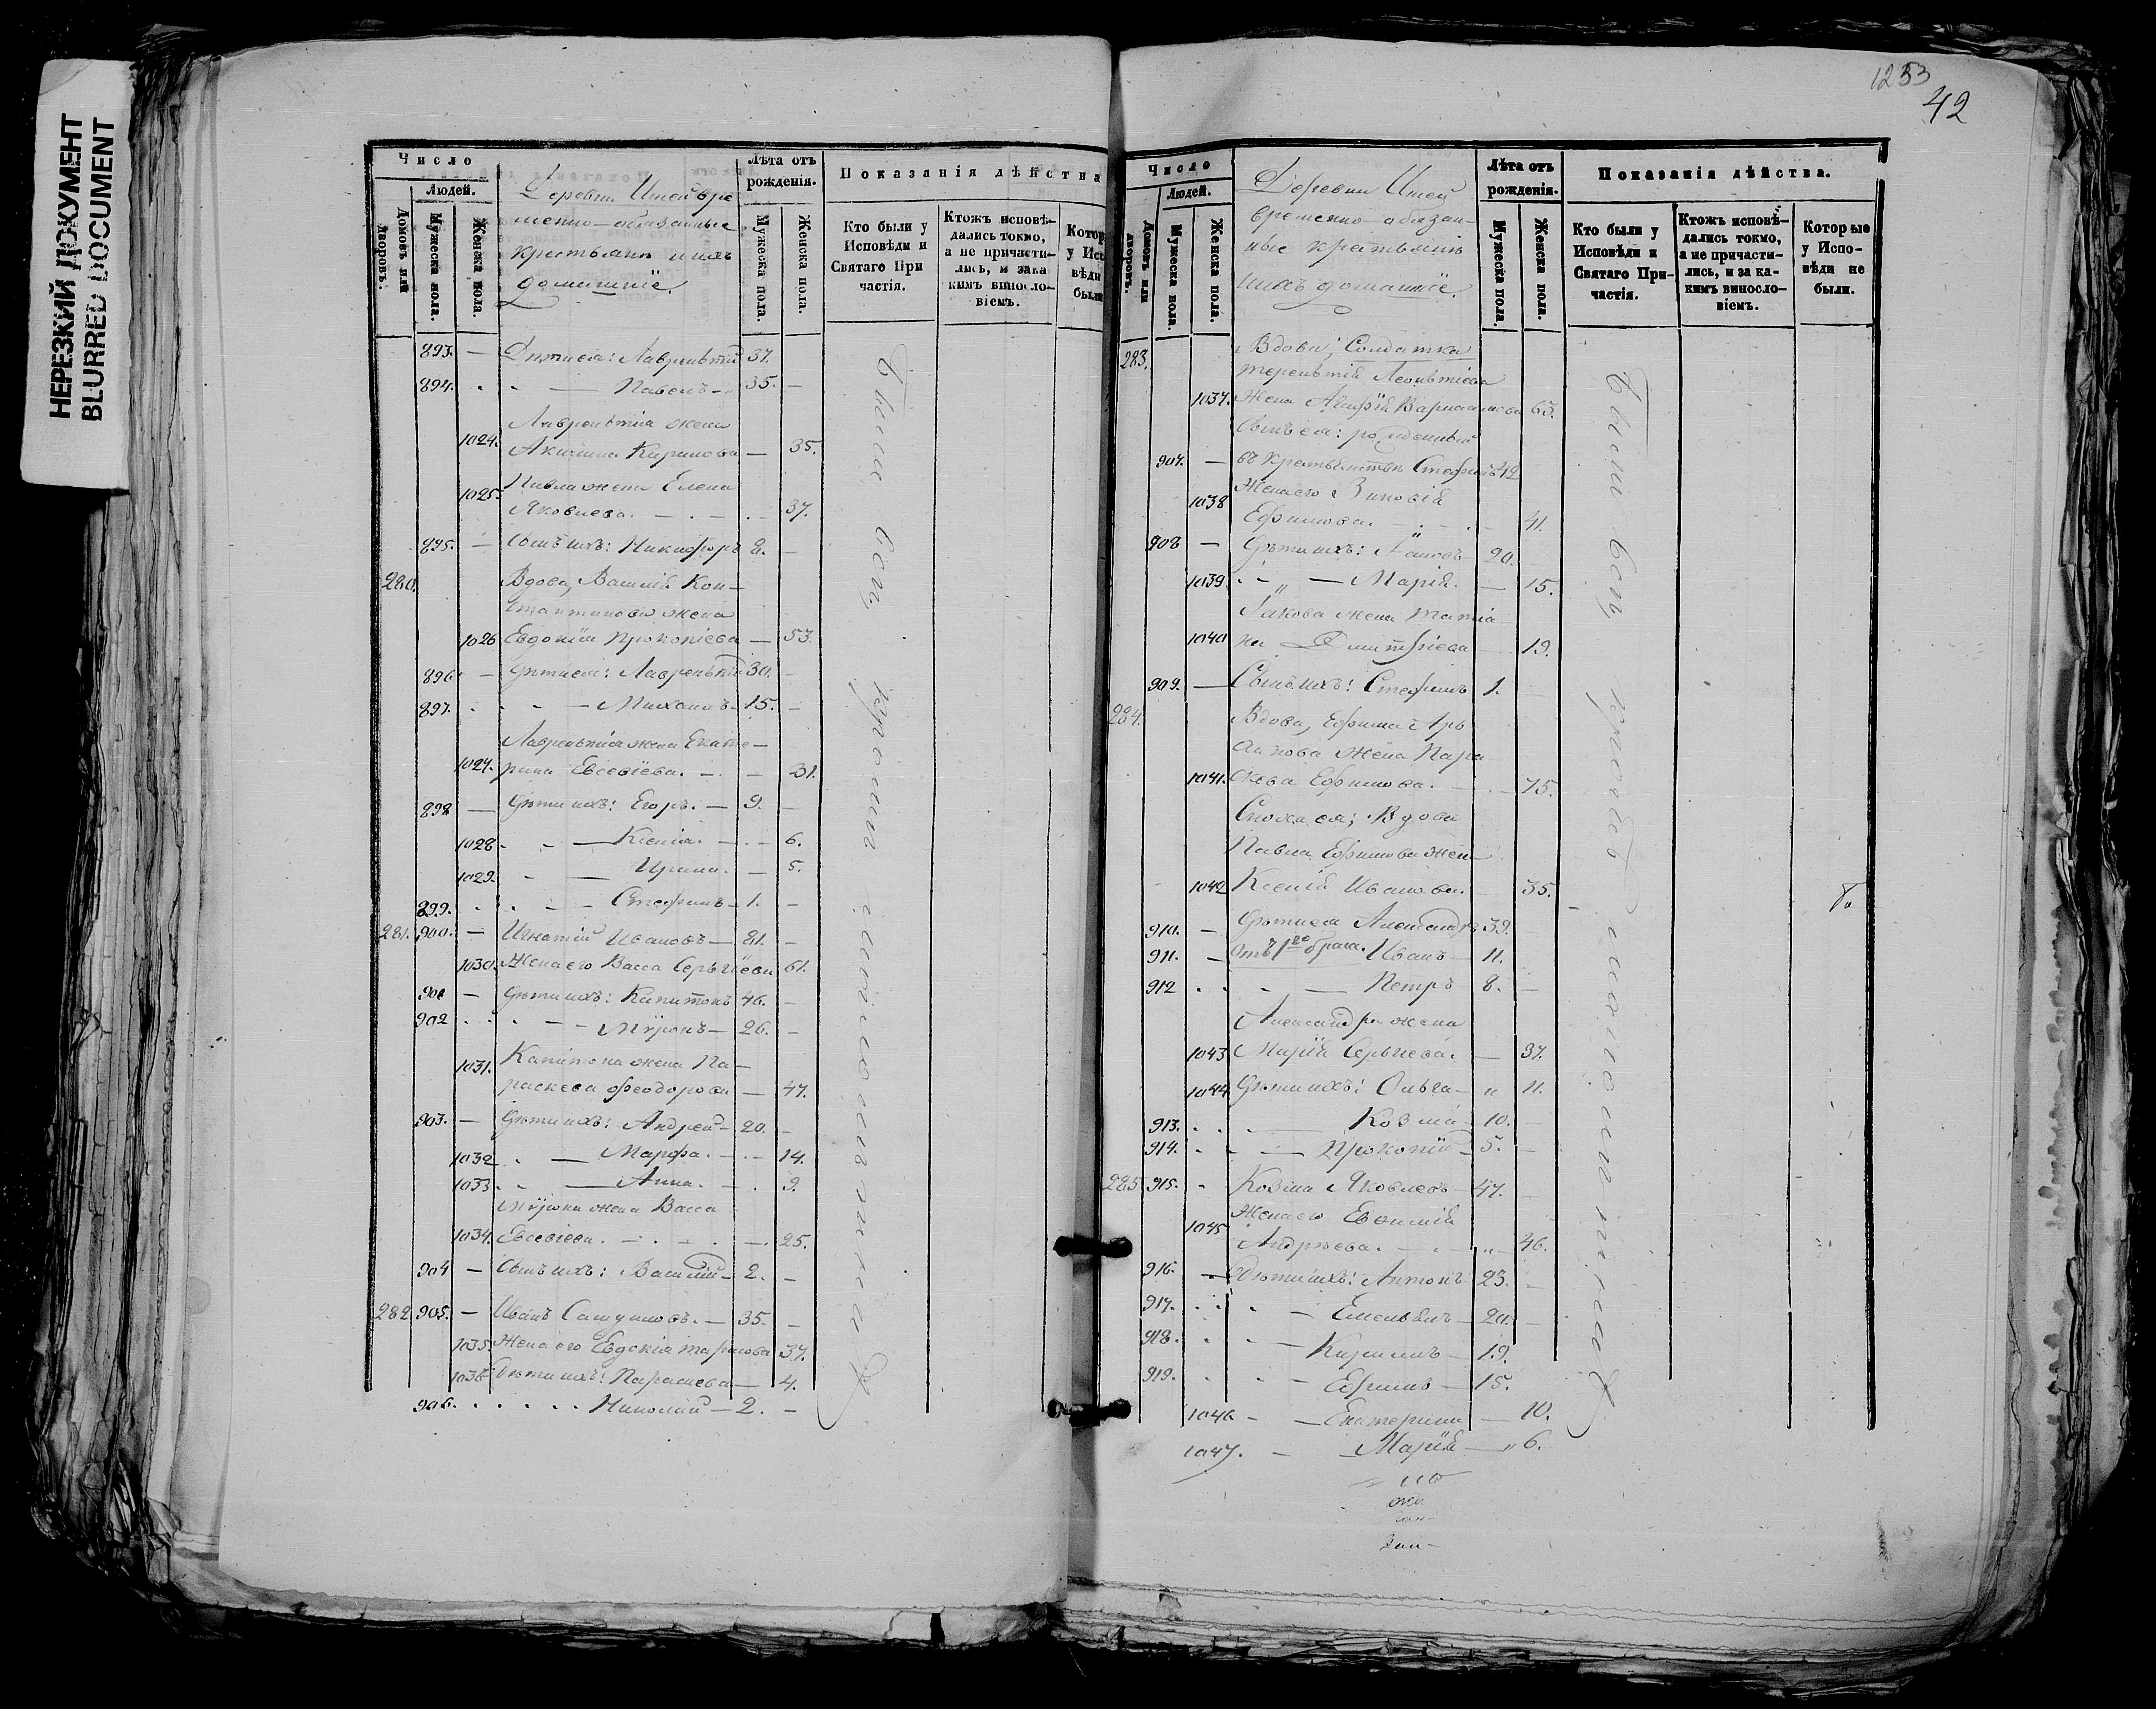 НЕРЕЗКИЙ ДОКУМЕНТ
BLURRED DOCUMENT
Число
Людей.
Домовъ или дворовъ.
Мужеска пола.
Женска пола.
Деревни
менно-обязанные
крестьяне и ихъ
домашніе.
Лѣта отъ рожденія.
Мужеска пола.
Женска пола.
Показанія дѣйства
Кто были у Исповѣди и Святаго При частія.
Ктожъ исповѣ-дались токмо, а не причасти-лись, и зака кимъ виносло-віемъ.
Котор у Исп вѣди были
893. — Дѣти ея: Лаврентій 37.
894. — Павелъ — 35. —
Лаврентія жена
1024. Акилина Кирилова — 35.
1025. Павла жена Елена
Яковлева. — 37.
895. — Сынъ ихъ: Никифоръ 8. —
280. Вдова, Василія Кон-
стантинова жена
1026 Евдокія Прокопіева — 53.
896. — Дѣти ея: Лаврентій 30. —
897. — Михаилъ — 15. —
Лаврентія жена Екате-
1027. рина Евсевіева. — 31.
898 — Дѣти ихъ: Егоръ. — 9. —
1028 — Ксенія. — 6.
1029. — Ирина. — 5.
899. — Стефанъ — 1. —
281. 900. — Игнатій Ивановъ — 81. —
1030. Жена его Васса Сергіева 61.
901 — Дѣти ихъ: Капитонъ 46. —
902 — Мѵронъ — 26. —
1031. Капитона жена Па-
раскева Феодорова — 47.
903. — Дѣти ихъ: Андрей — 20. —
1032 — Марфа. — 14.
1033 — Анна. — 9.
Мѵрона жена Васса
1034. Евсевіева. — 25.
904 — Сынъ ихъ: Василій — 2. —
282 905. — Иванъ — 35. —
1035. Жена его Евдокія Тарасова 37.
1036 Дѣти ихъ: Параскева — 4.
906. Николай — 2. —
Были всѣ, кромѣ малолѣтнихъ
1253
42
Число
Людей.
Домовъ или дворовъ.
Мужеска пола.
Женска пола.
Деревни
временно-обязан-
ные крестьяне
и ихъ домашніе.
Лѣта отъ рожденія.
Мужеска пола.
Женска пола.
Показанія дѣйства.
Кто были у Исповѣди и Святаго При-частія.
Ктожъ исповѣ-дались токмо, а не причасти-лись, и за ка-кимъ виносло-віемъ.
Которые у Испо-вѣди не были.
283. Вдова, Солдатка
Терентія Леонтіева
1037. Жена Варлаамова 63.
Сынъ ея: рожденный
907. — въ крестьянствѣ Стефанъ 42
1038 Жена его Зиновія
Ефимова. — 41.
908 — Дѣти ихъ: Іаковъ — 20.
1039. — Марія. — 15.
Іакова жена Татіа-
1040 на Дмитріева — 19.
909. — Сынъ ихъ: Стефанъ 1.
284. Вдова, Ефима
жена Пара
1041. скева Ефимова. — 75.
Сноха ея; Вдова
Павла Ефимова жена
1042 Ксенія Иванова. 35.
910. — Дѣти ея Александръ 39.
911. — Отъ 1го брака. Иванъ — 11.
912 — Петръ 8. —
Александра жена
1043 Марія Сергіева. — 37.
1044 Дѣти ихъ: Ольга — „ 11.
913. — Козма — 10.
914. — Прокопій — 5. —
285 915. Козма Яковлевъ — 47.
1045 Жена его Евѳимія
Андреева. — 46.
916. — Дѣти ихъ: Антонъ 23.
917. — Емельянъ — 20. —
918. — Кириллъ — 19.
919. — Ефимъ — 15.
1046 — Екатерина — 10.
1047. — Марія — „ 6.
Были всѣ, кромѣ малолѣтнихъ